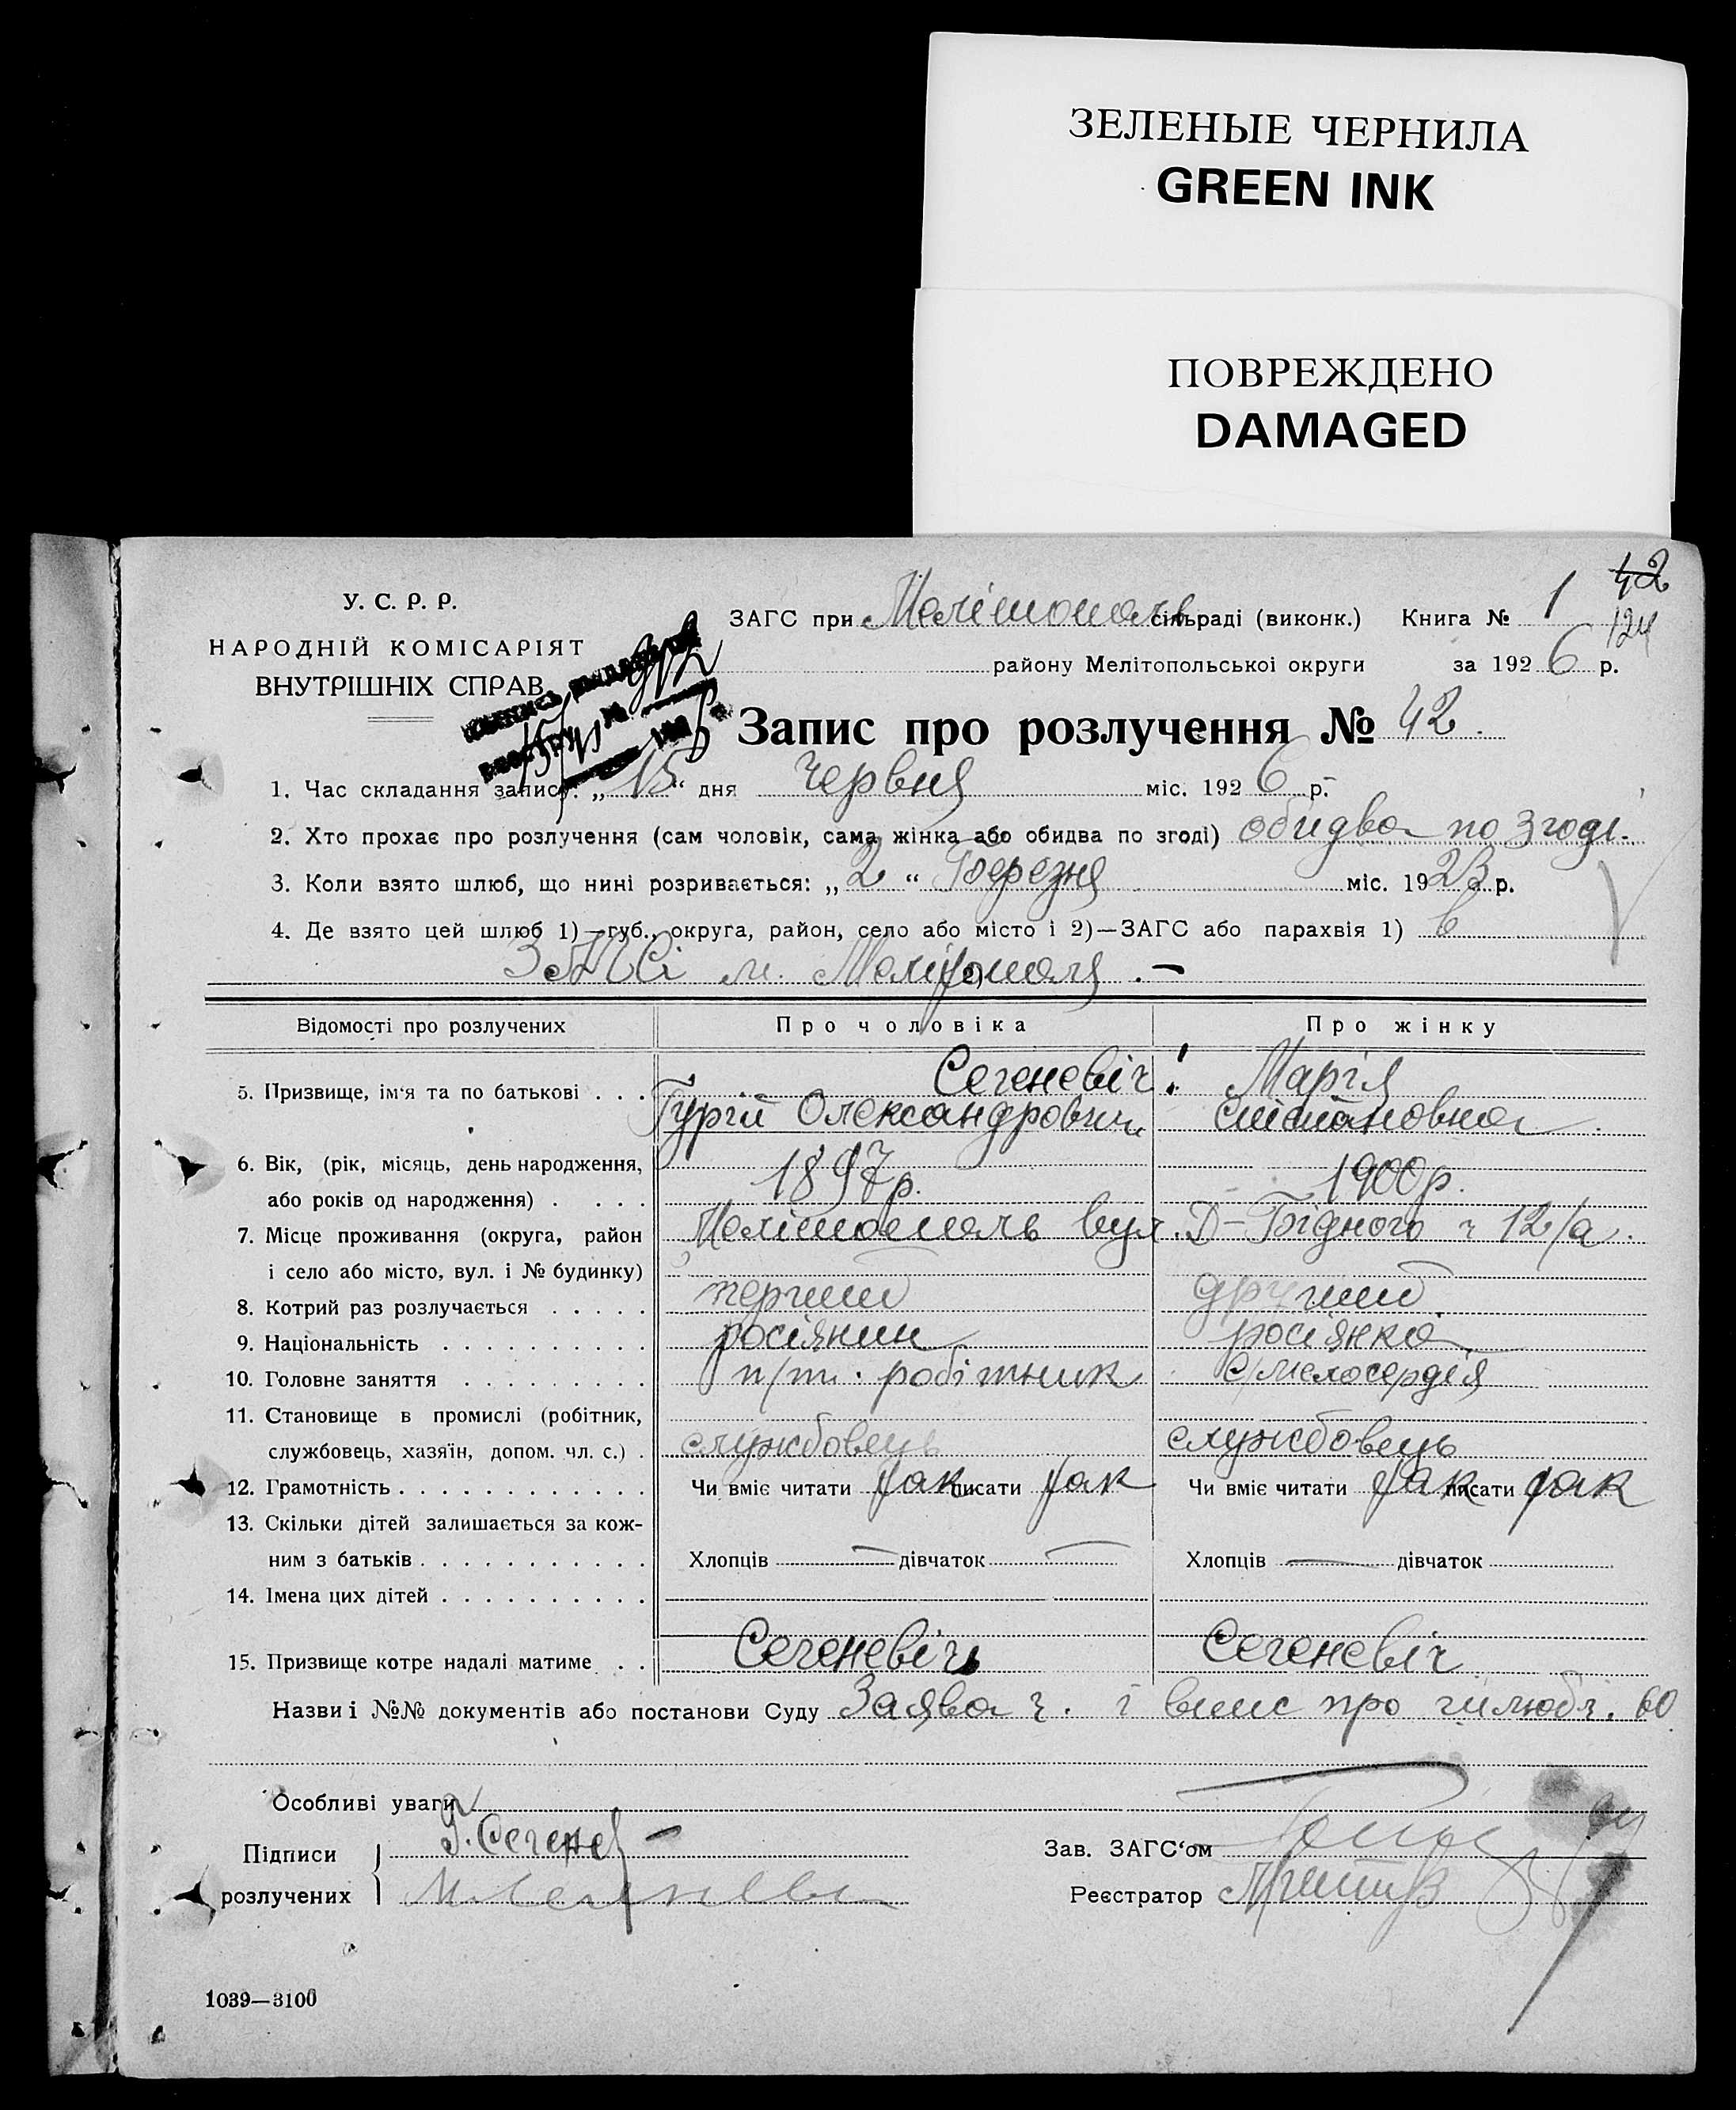 ЗЕЛЕНЫЕ ЧЕРНИЛА
GREEN INK
ПОВРЕЖДЕНО
DAMAGED
42
124
У. С. Р. Р.
НАРОДНІЙ КОМІСАРІЯТ
ВНУТРІШНІХ СПРАВ
ЗАГС при Мелітополь сільраді (виконк.) Книга № 1
району Мелітопольської округи за 1926 р.
Запис про розлучення № 42.
1. Час складання запису: „15“ дня Червня міс. 1926 р.
2. Хто прохає про розлучення (сам чоловік, сама жінка або обидва по згоді) обидва по згоді.
3. Коли взято шлюб, що нині розривається: „2“ Березня міс. 1923 р.
4. Де взято цей шлюб 1)—губ., округа, район, село або місто і 2)—ЗАГС або парахвія 1) в
ЗАГСі м. Мелітополя.—
Відомості про розлучених Про чоловіка Про жінку
5. Призвище, ім‘я та по батькові . . . Сегеневіч: Марія
Гурій Олександрович Стістановна
6. Вік, (рік, місяць, день народження,
або років од народження) . . . . 1897р. 1900р.
7. Місце проживання (округа, район Мелітополь вул. Д-Бідного ч 12/а.
і село або місто, вул. і № будинку)
8. Котрий раз розлучається . . . . . перший другий
9. Національність . . . . . . . . . . росіянин росіянка
10. Головне заняття . . . . . . . . . п/т. робітник с/мелосердія
11. Становище в промислі (робітник,
службовець, хазяїн, допом. чл. с.) . службовець службовець
12. Грамотність . . . . . . . . . . . . Чи вміє читати так писати так Чи вміє читати так писати так
13. Скільки дітей залишається за кож-
ним з батьків . . . . . . . . . . . Хлопців — дівчаток — Хлопців — дівчаток
14. Імена цих дітей . . . . . . . . . .
15. Призвище котре надалі матиме . . Сегеневіч Сегеневіч
Назви і №№ документів або постанови Суду Заява ч. і випис про шлюб ч. 60
Особливі уваги
Підписи Г. Сегене
розлучених
Зав. ЗАГС‘ом
Реєстратор
1039—3100